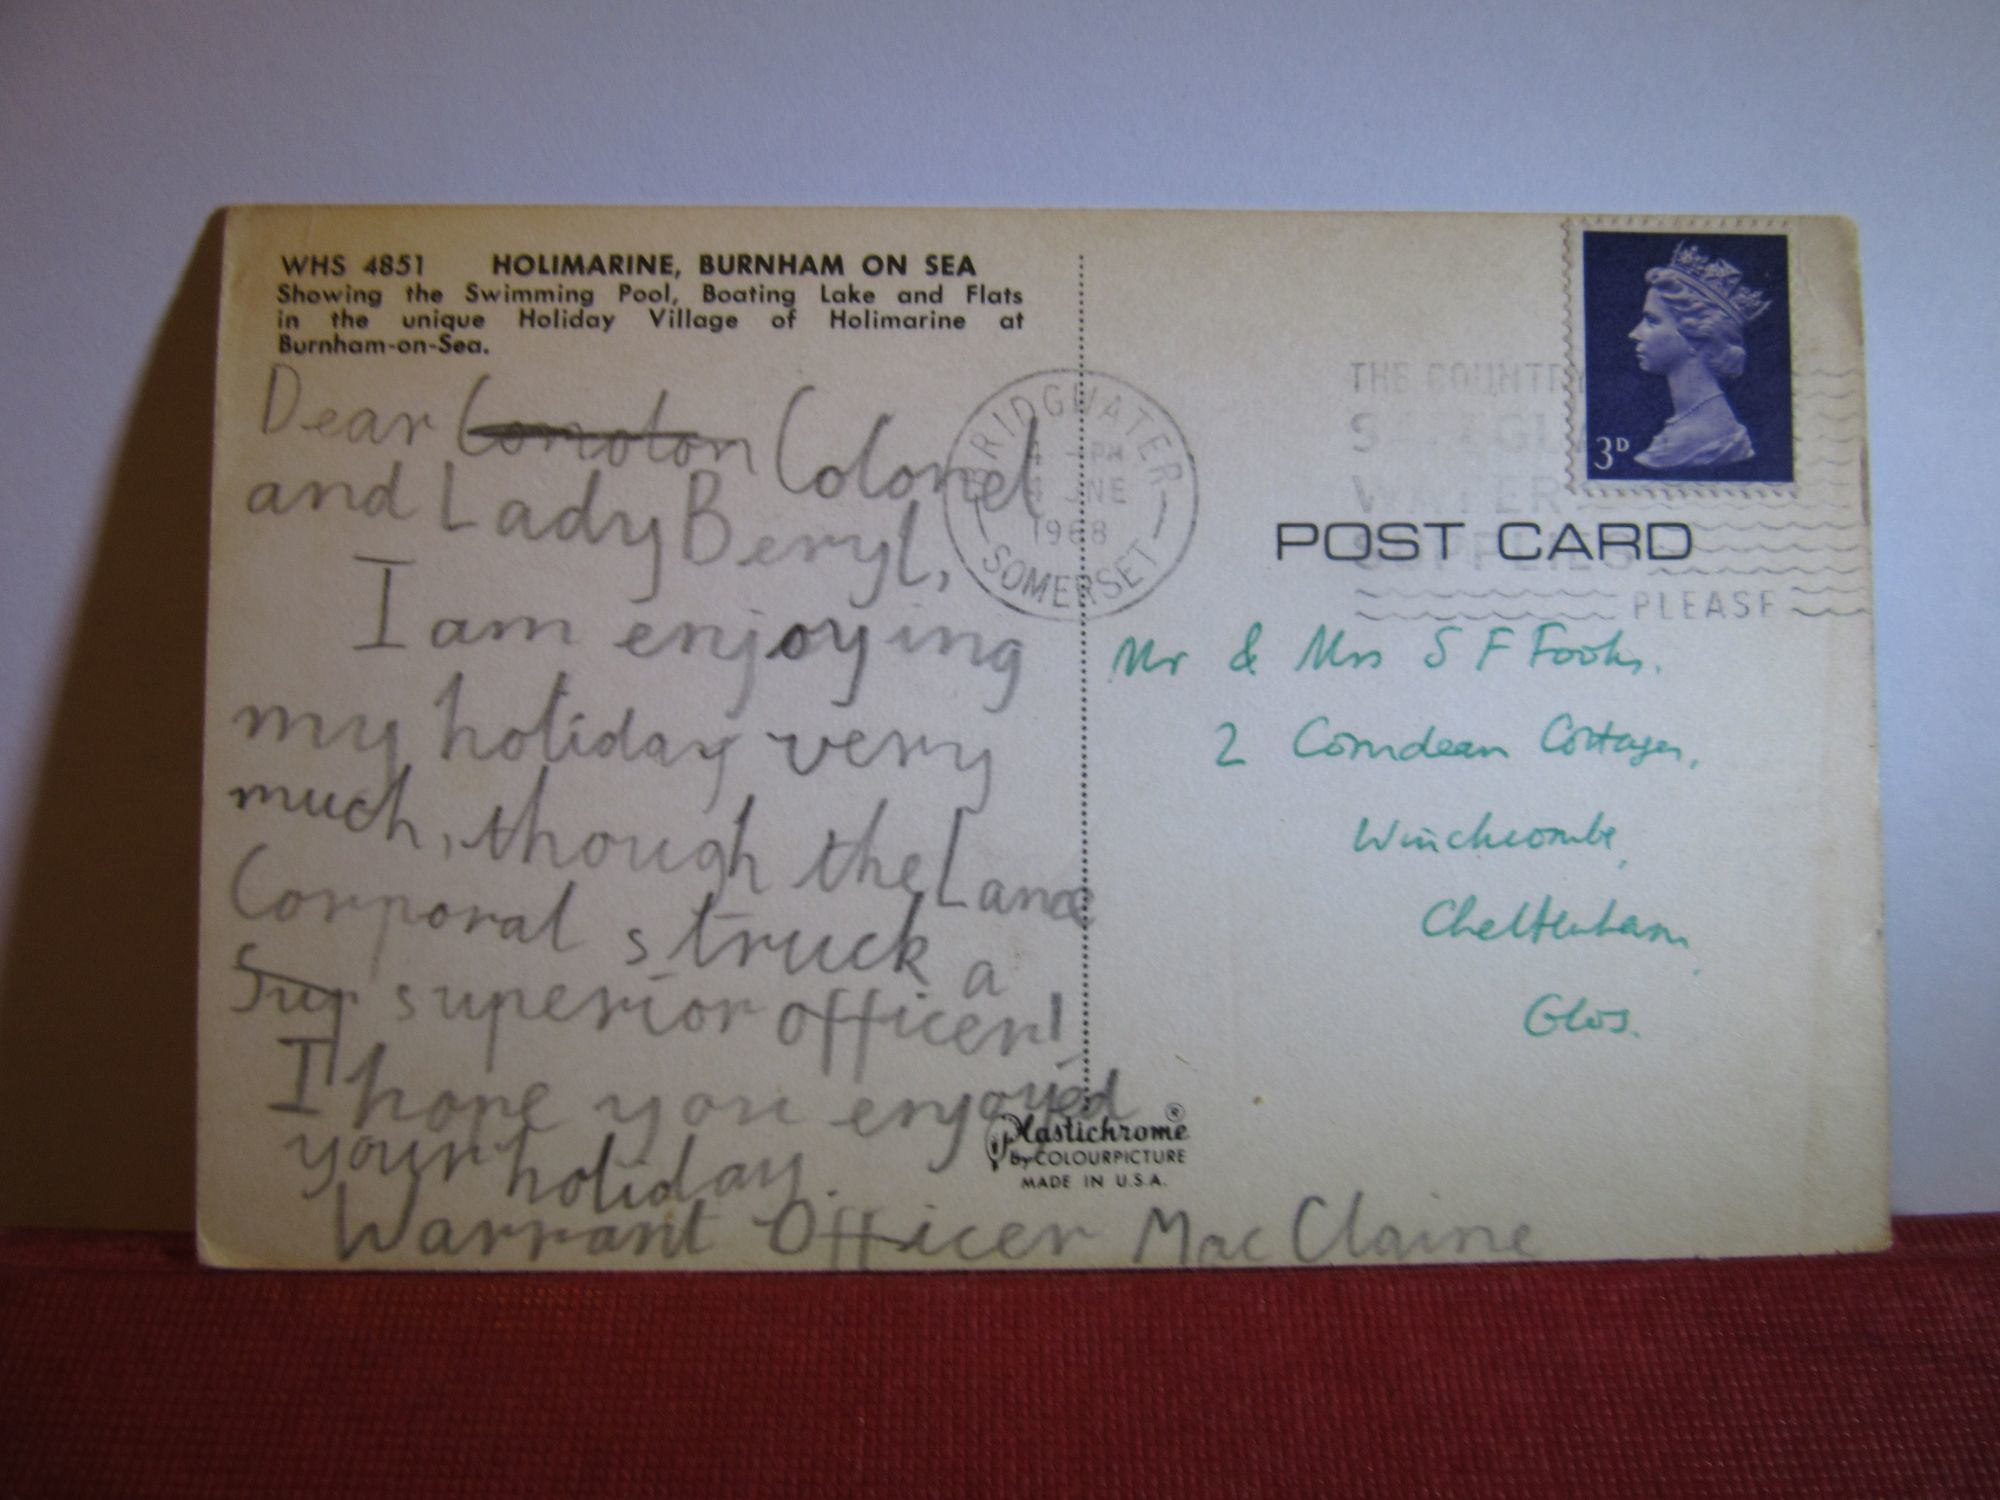 WHS 4851 HOLIMARINE, BURNHAM ON SEA
Showing the Swimming Pool, Boating Lake and Flats
in the unique Holiday Village of Holimarine at
Burnham-on-Sea.
Dear Colonel
and Lady Beryl,
I am enjoying
my holiday very
much, though the Lance
Corporal struck a
Sup superior officer!
I hope you enjoyed
your holiday.
Warrant Officer MacClaine
BRIDGWATER
4 - PM
4 JNE
1968
SOMERSET
THE COUNTRY
WATER
SUPPLIES
PLEASE
3D
POST CARD
Mr & Mrs S F Fooks.
2 Corndean Cottages,
Winchcombe,
Cheltenham,
Glos.
Plastichrome ®
by COLOURPICTURE
MADE IN U.S.A.